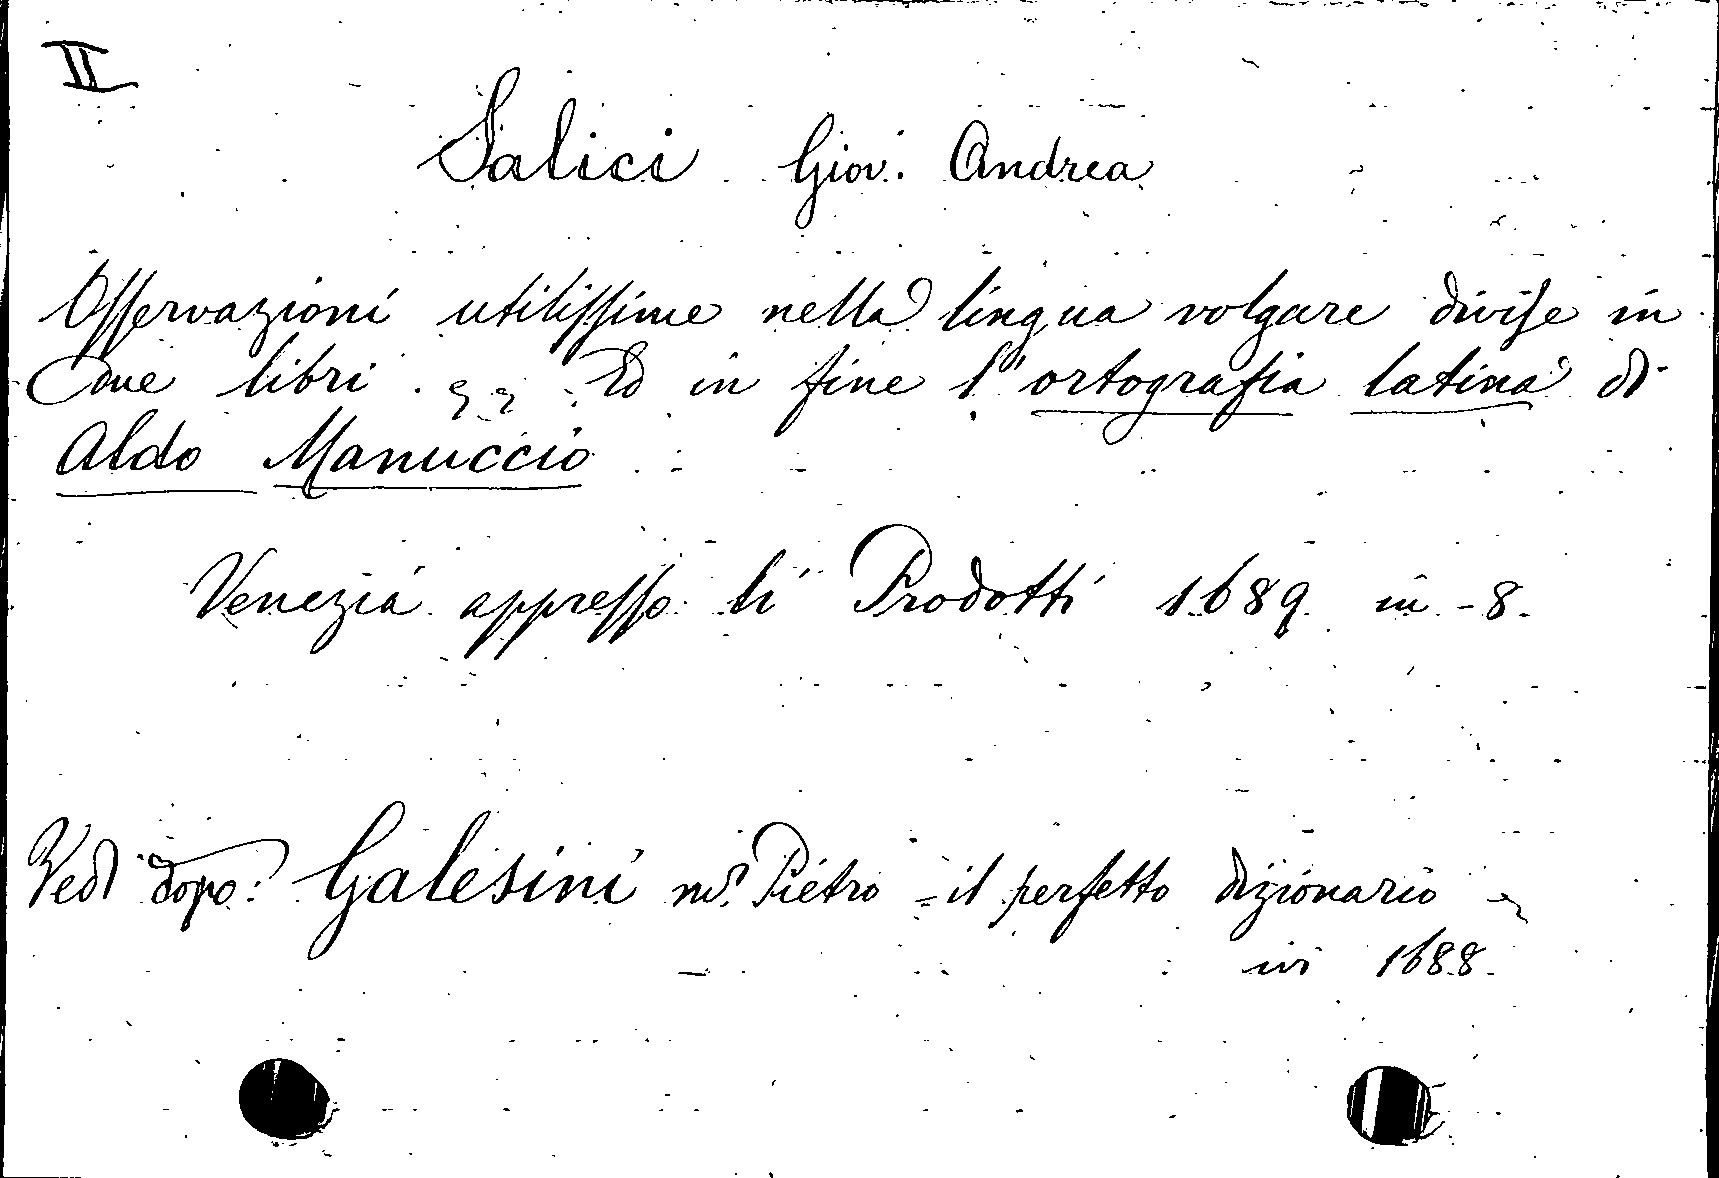 II
Salici Giov. Andrea
Osservazioni utilissime nella lingua volgare divise in
due libri. Ed in fine l'ortografia latina di
Aldo Manuccio
Venezia appresso li Prodotti 1689 in-8.
Vedi dopo: Galesini Pietro = il perfetto dizionario
ivi 1688.